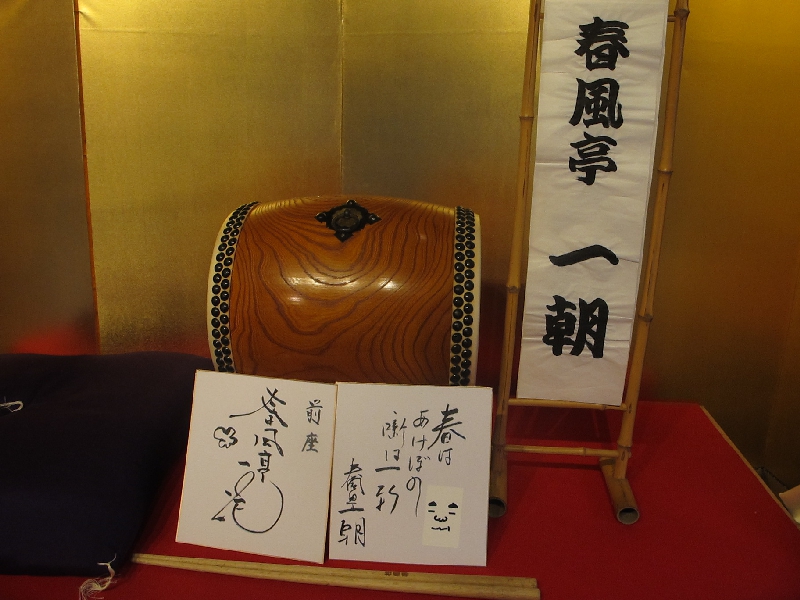 春風亭 一朝
前座
春風亭一花
春は
あけぼの
噺は一朝
春風亭一朝